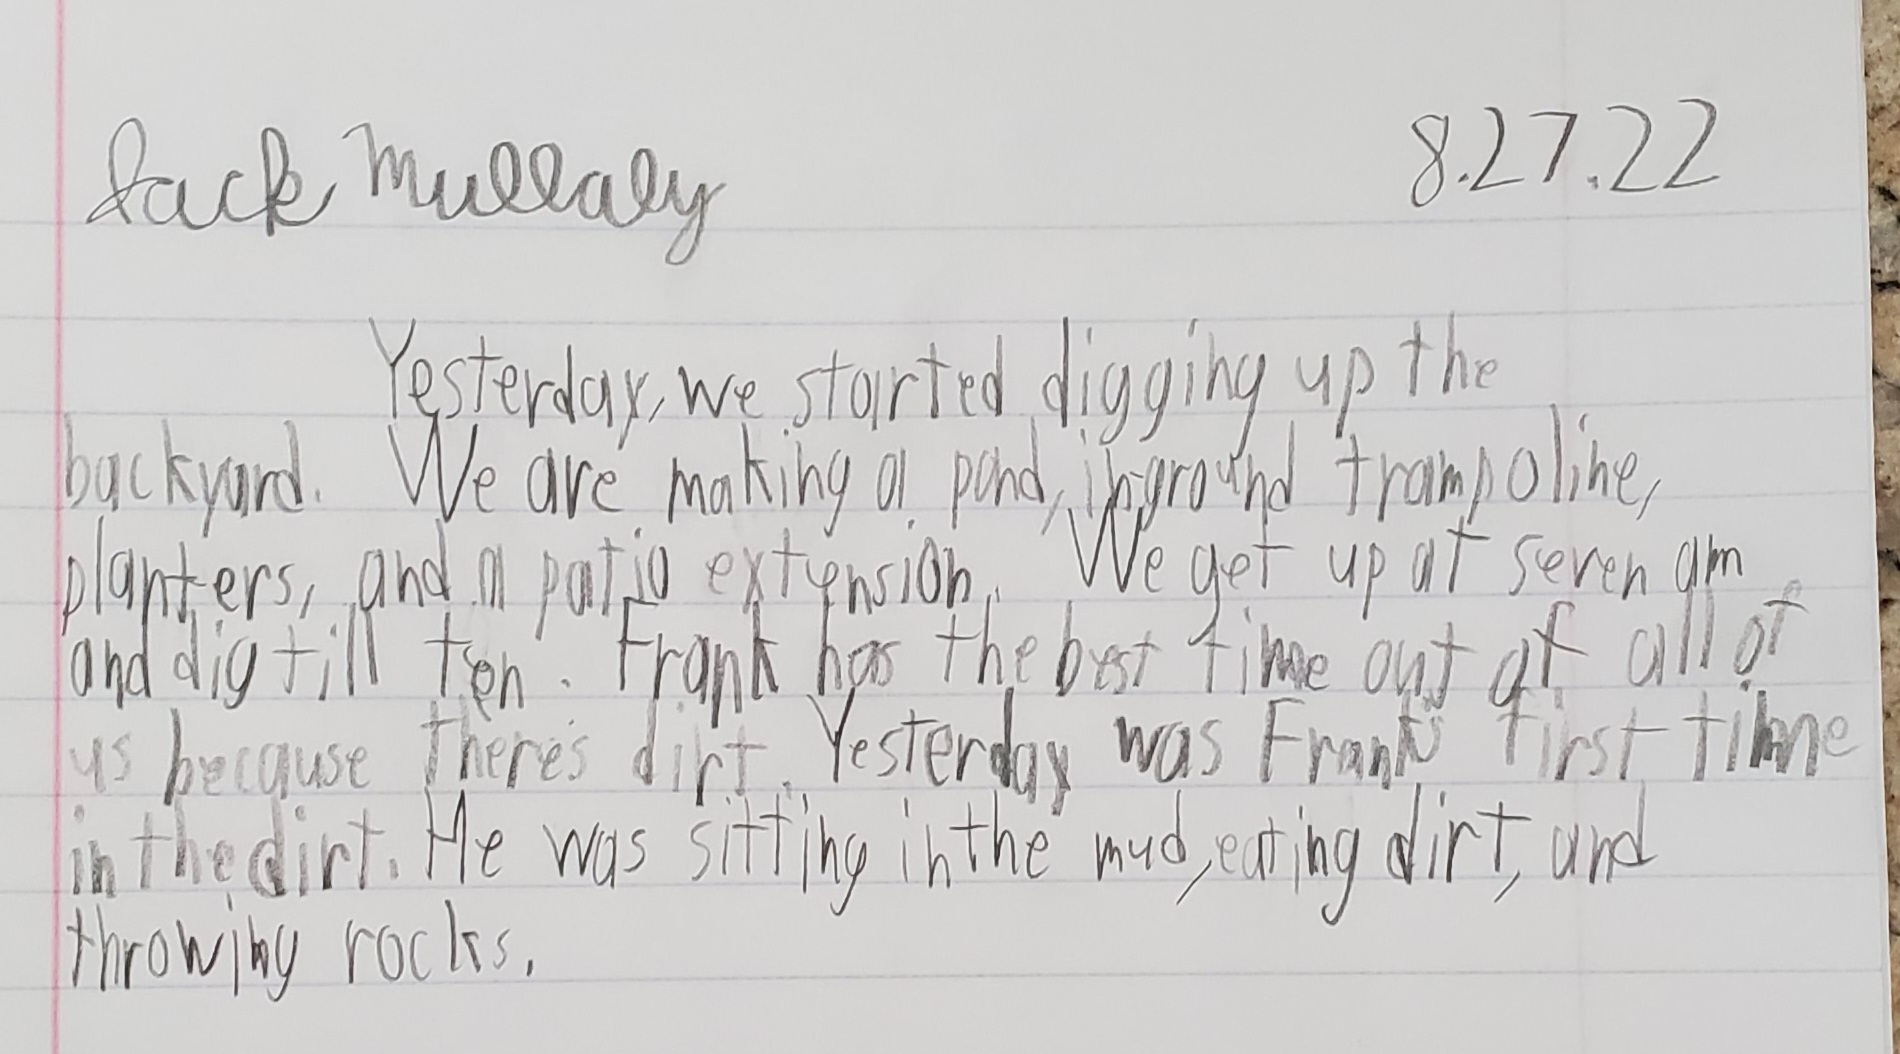 Jack Mullaly 8.27.22
Yesterday, we started digging up the
backyard. We are making a pond, inground trampoline,
planters, and a patio extension. We get up at seven am
and dig till ten. Frank has the best time out of all of
us because there's dirt. Yesterday was Frank's first time
in the dirt. He was sitting in the mud, eating dirt, and
throwing rocks.